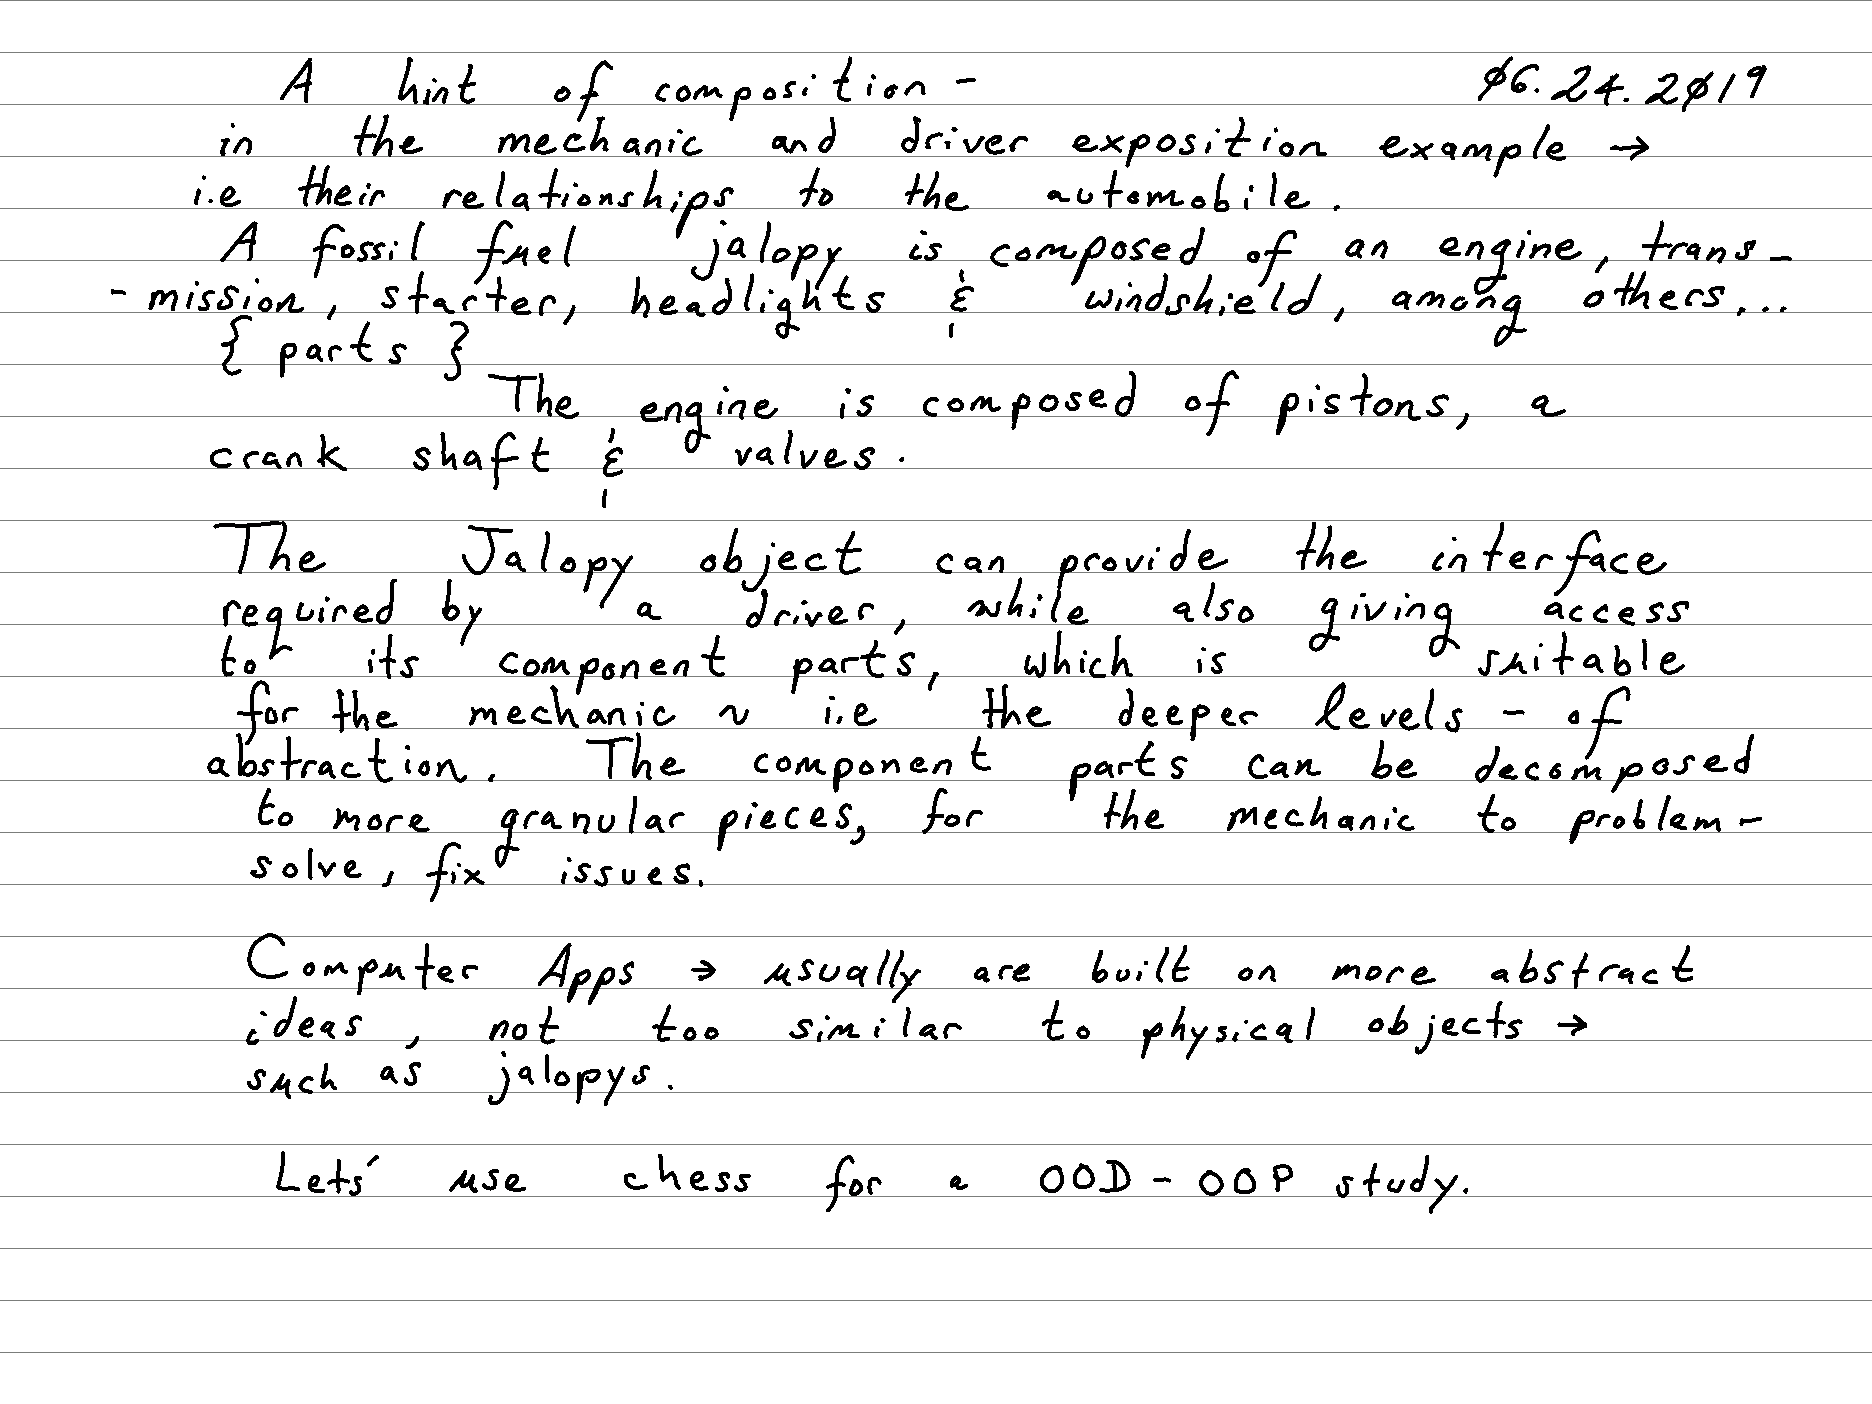 A hint of composition - ø6.24.2ø19
in the mechanic and driver exposition example →
i.e their relationships to the automobile.
A fossil fuel jalopy is composed of an engine, trans-
- mission, starter, headlights & windshield, among others...
{ parts }
The engine is composed of pistons, a
crank shaft & valves.
The Jalopy object can provide the interface
required by a driver, while also giving access
to its component parts, which is suitable
for the mechanic ~ i.e the deeper levels - of
abstraction. The component parts can be decomposed
to more granular pieces, for the mechanic to problem-
solve, fix issues.
Computer Apps → usually are built on more abstract
ideas, not too similar to physical objects →
such as jalopys.
Lets' use chess for a OOD - OOP study.